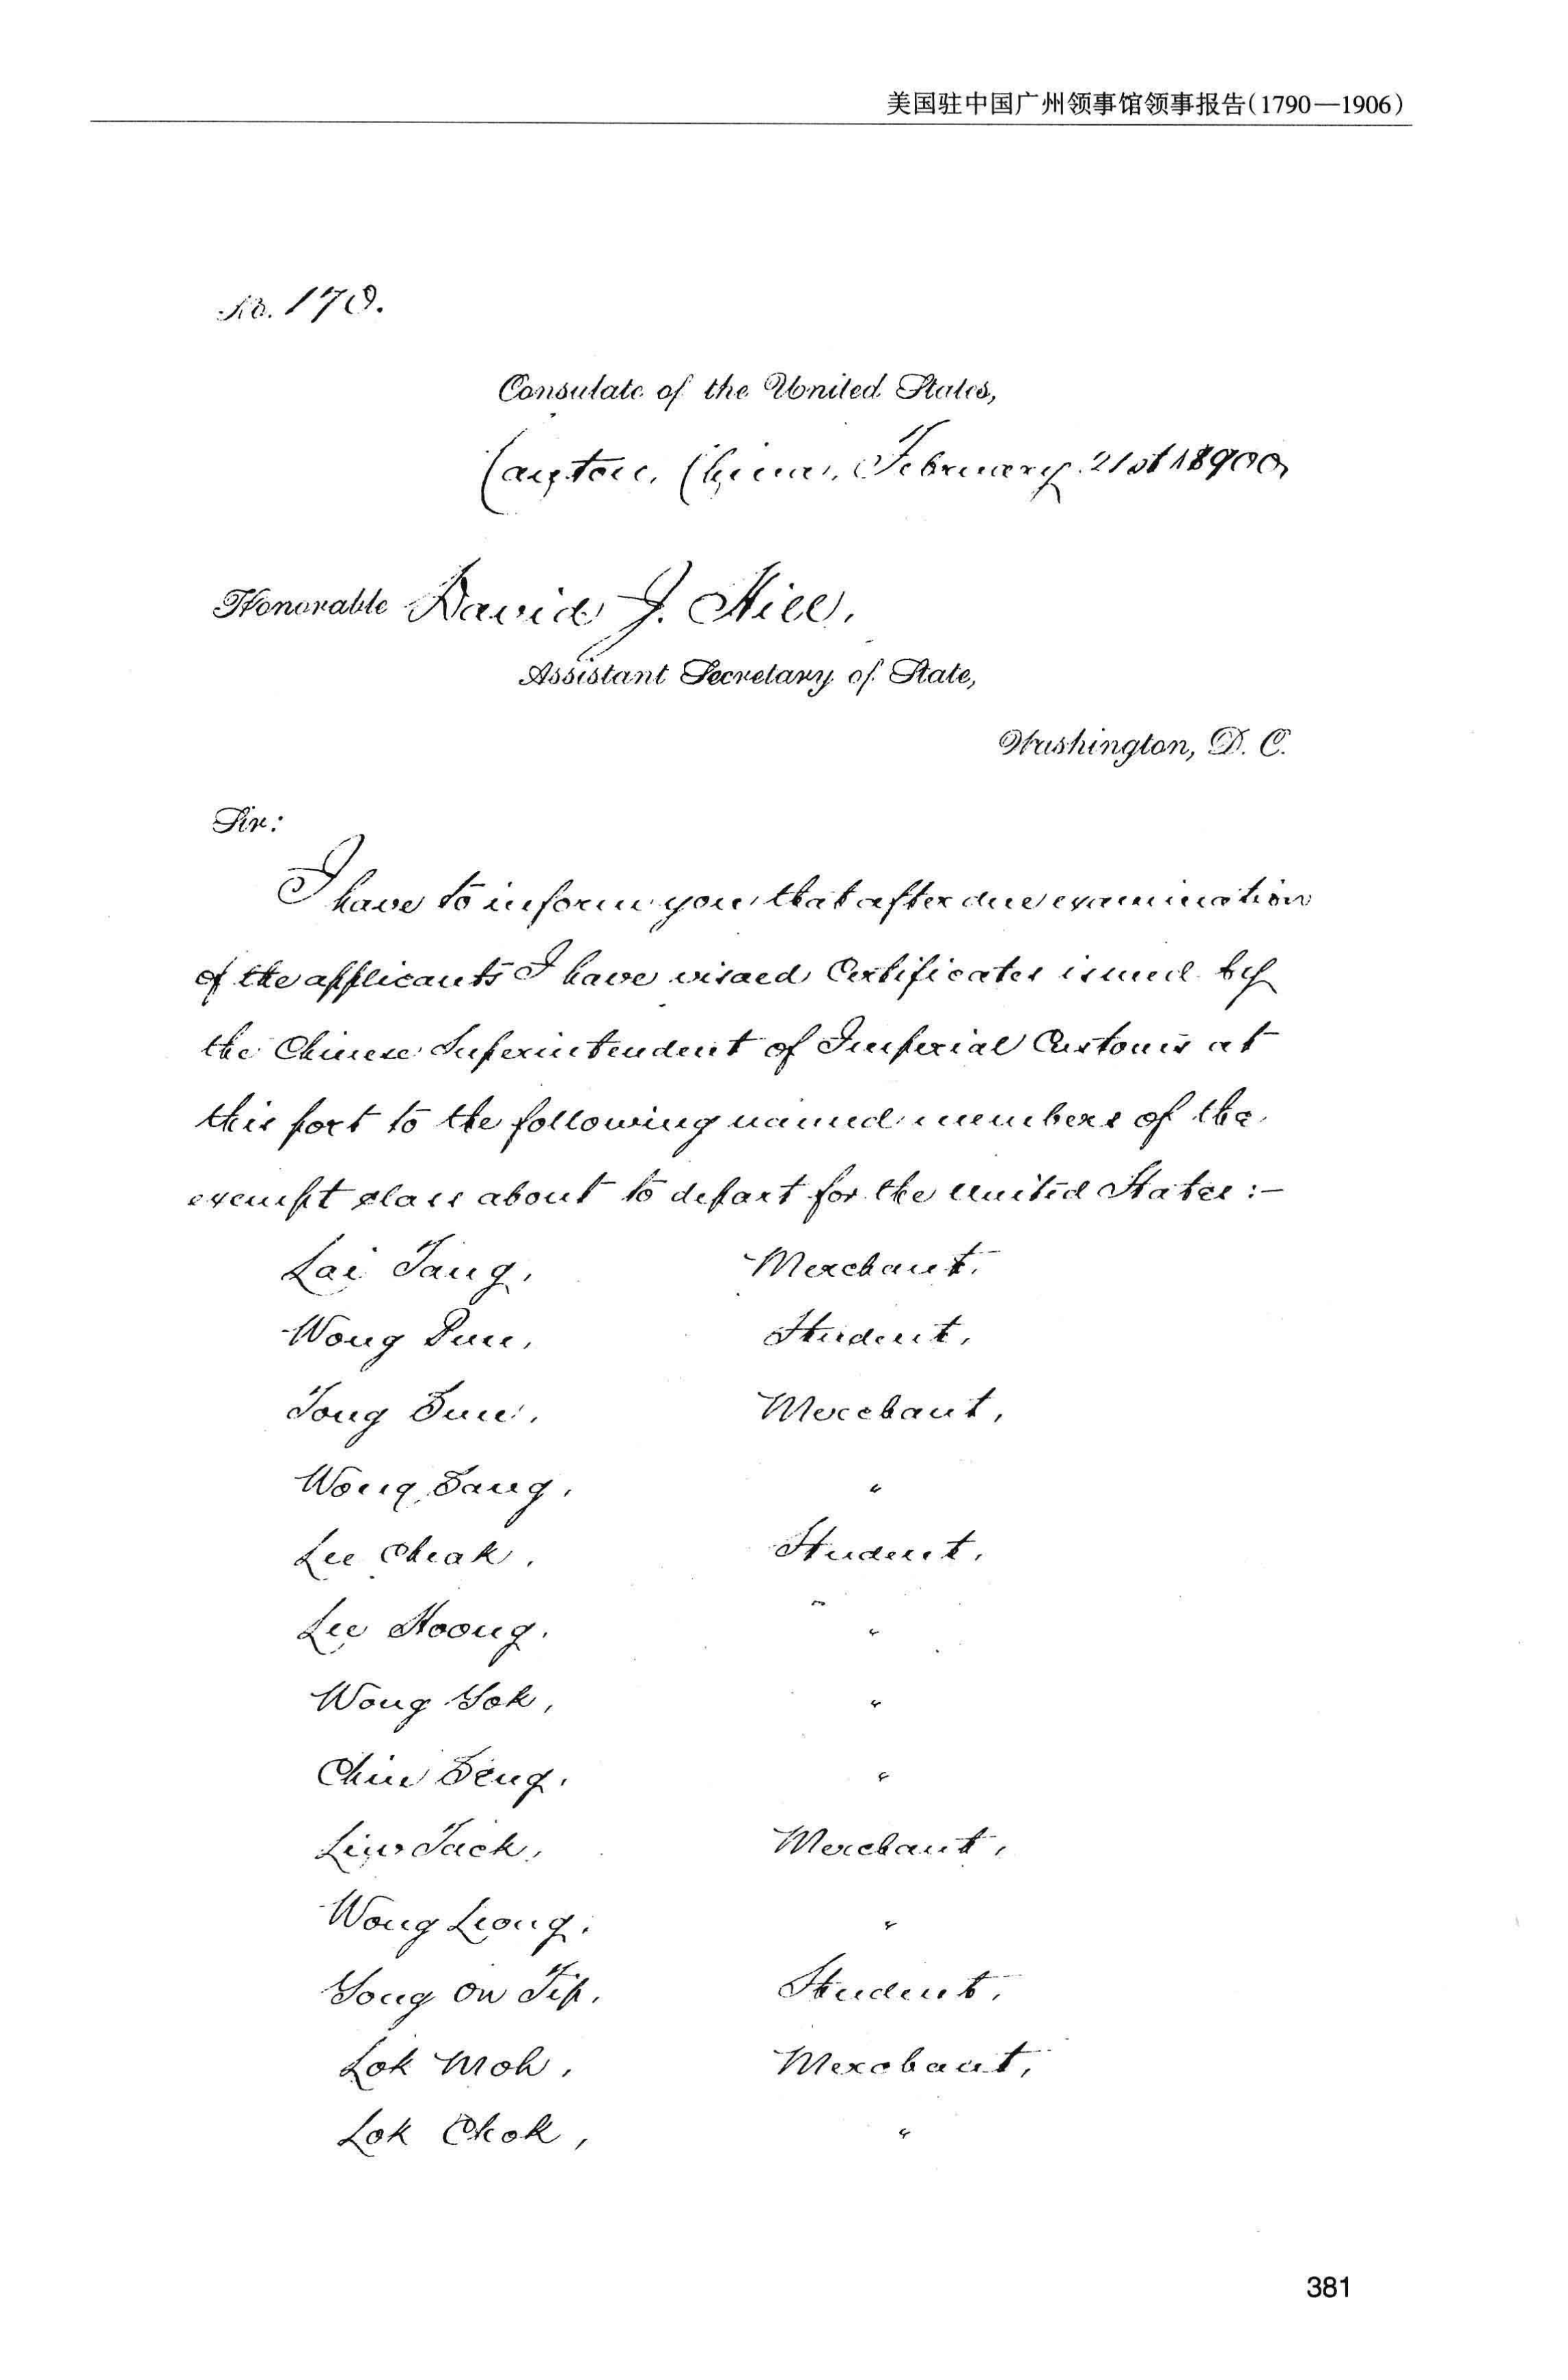 美国驻中国广州领事馆领事报告(1790—1906)
No. 170.
Consulate of the United States,
Canton, China, February 21st 18900,
Honorable David J. Hill,
Assistant Secretary of State,
Washington, D. C.
Sir:
I have to inform you that after due examination
of the applicants I have visaed Certificates issued by
the Chinese Superintendent of Imperial Customs at
this port to the following named members of the
exempt class about to depart for the United States :-
Lai Tang, Merchant.
Wong Pun, Student,
Tong Sun, Merchant,
Wong Sang, "
Lee Cheak, Student,
Lee Hoong. "
Wong Yok, "
Chin Seng, "
Liw Jack, Merchant,
Wong Leong. "
Yong On Tip, Student,
Lok Moh, Merchant,
Lok Chok, "
381